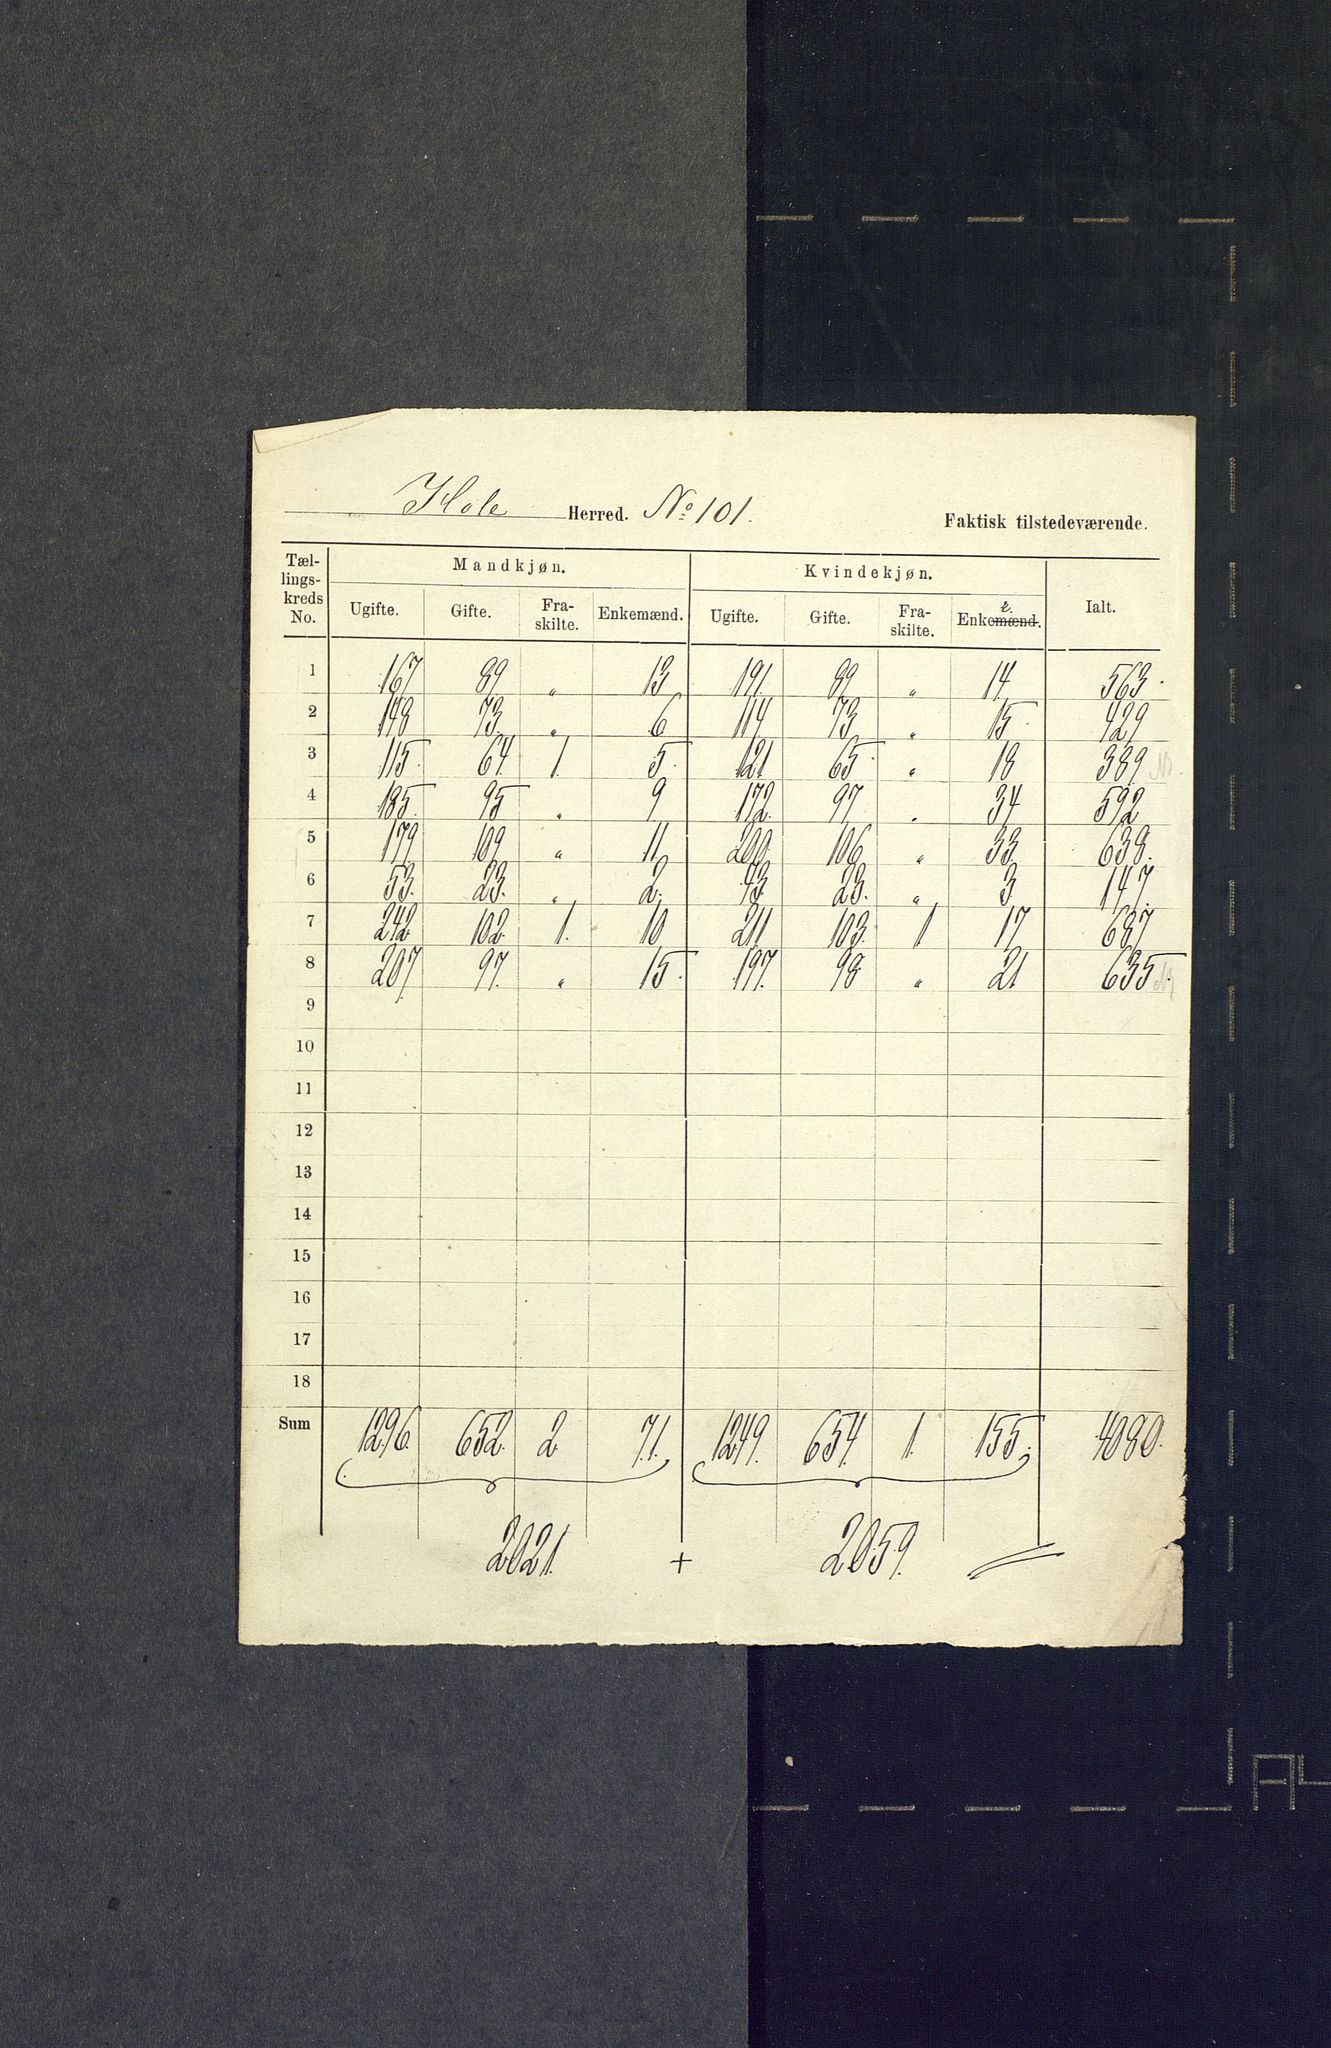 Hole Herred. No 101. Faktisk tilstedeværende.
Tællingskreds No. Mandkjøn. Kvindekjøn. Ialt.
Ugifte. Gifte. Fra-skilte. Enkemænd. Ugifte. Gifte. Fra-skilte. Enkemænd. r.
1 167 89 „ 13 191 89 „ 14 563
2 148 73 „ 6 114 73 „ 15 429
3 115 64 1 5 121 65 „ 18 389
4 185 95 „ 9 172 97 „ 34 592
5 179 109 „ 11 200 106 „ 33 638
6 53 23 „ 2 43 23 „ 3 147
7 242 102 1 10 211 103 1 17 687
8 207 97 „ 15 197 98 „ 21 635
9
10
11
12
13
14
15
16
17
18
Sum 1296 652 2 71 1249 654 1 155 4080
2021 + 2059 =
A4